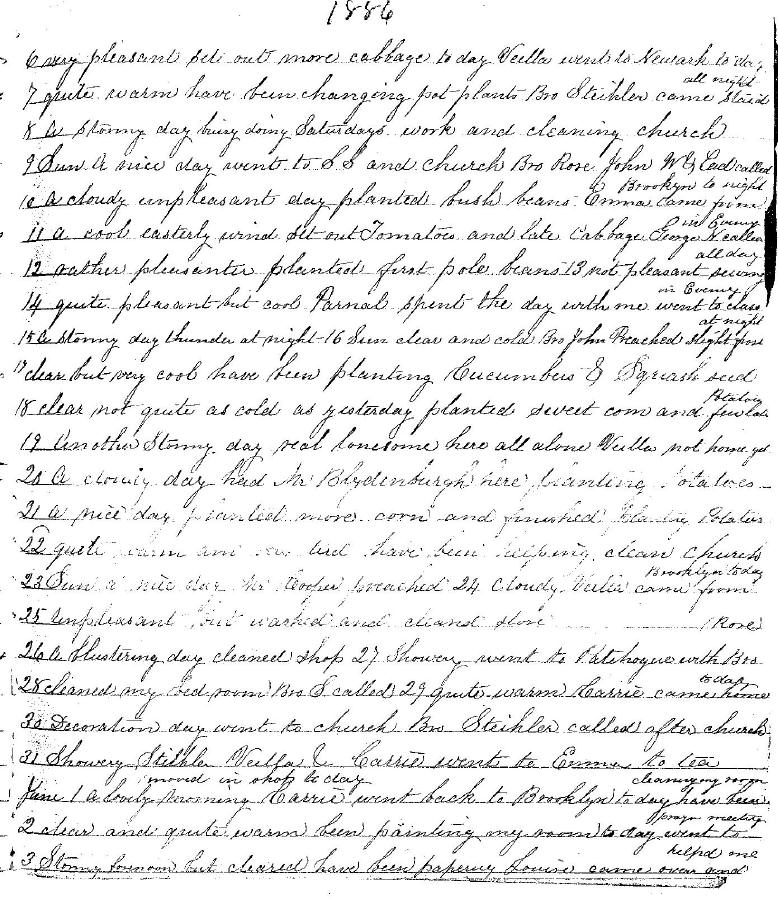 1886
6 very pleasant set out more cabbage to day Veilla went to Newark to day
all night
7 quite warm have been changing pot plants Bro Steihler came staid
8 A stormy day busy doing Saturdays work and cleaning church
9 Sun A nice day went to S S and church Bro Rose John W & Ead called
Brooklyn to night
10 A cloudy unpleasant day planted bush beans Emma came from
in Eveny
11 a cool easterly wind set out Tomatoes and late Cabbage George H called
all day
12 rather pleasanter planted first pole beans 13 not pleasant sewing
in Eveny
14 quite pleasant but cool Parnal spent the day with me went to class
at night
15 A stormy day thunder at night 16 Sun clear and cold Bro John Preached slight frost
17 clear but very cool have been planting Cucumbers & Squash seed
Potatoes
18 clear not quite as cold as yesterday planted sweet corn and few late
19 Another Stormy day real lonesome here all alone Veilla not home yet
20 A cloudy day had Mr Blydenburgh here planting Potatoes
21 A nice day planted more corn and finished planting Potatoes
22 quite warm am very tired have been helping clean church
Brooklyn to day
23 Sun a nice day Mr Cooper preached 24 Cloudy Veilla came from
25 Unpleasant but washed and cleaned stove (Rose)
26 A blustering day cleaned shop 27 Showery went to Patchogue with Bro
to day
28 cleaned my bed room Bro S called 29 quite warm Carrie came home
30 Decoration day went to church Bro Steihler called after church
31 Showery Steihler Veilla & Carrie went to Emma to tea
moved in shop to day cleaning my room
June 1 A lovely morning Carrie went back to Brooklyn to day have been
prayr meeting
2 clear and quite warm been painting my room to day went to
helpd me
3 Stormy forenoon but cleared have been papering Louise came over and